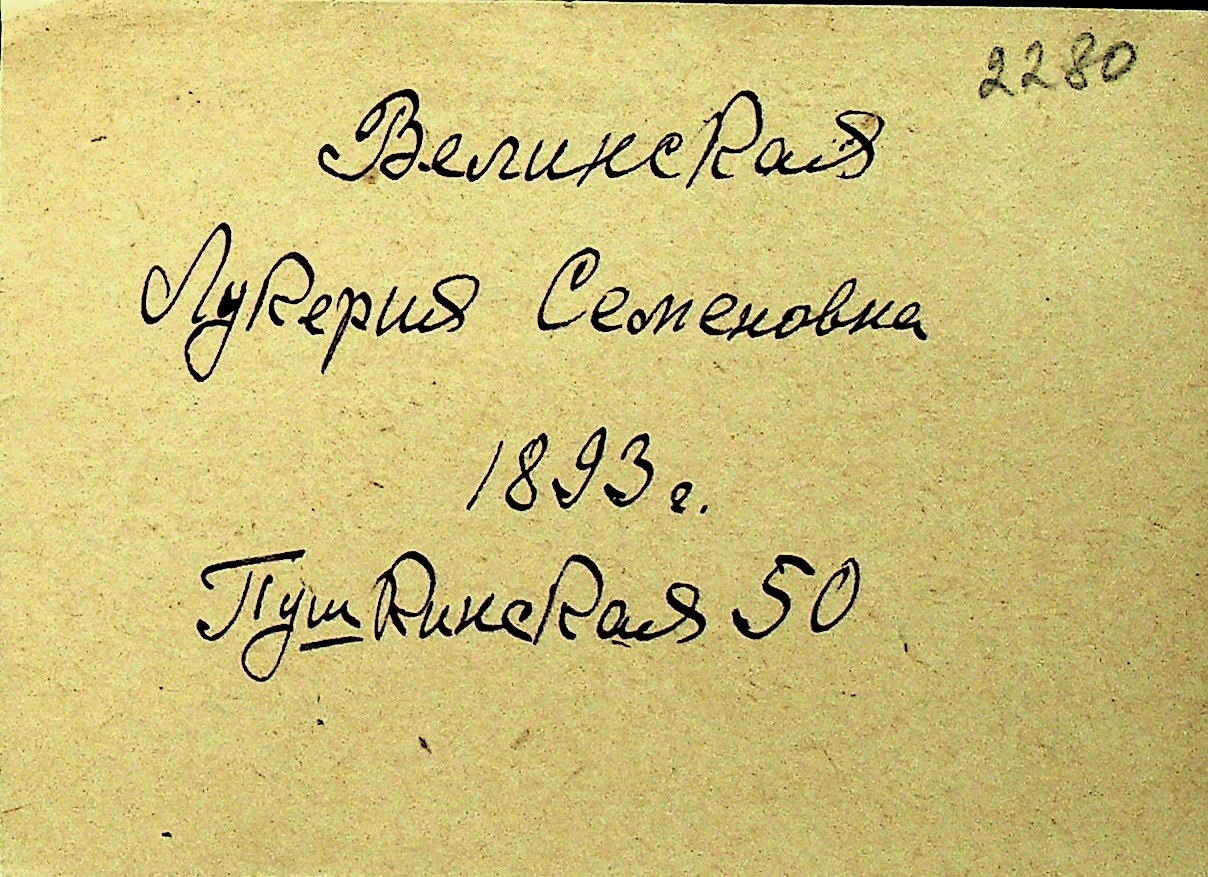 2280
Велинская
Лукерия Семеновна
1893 г.
Пушкинская 50